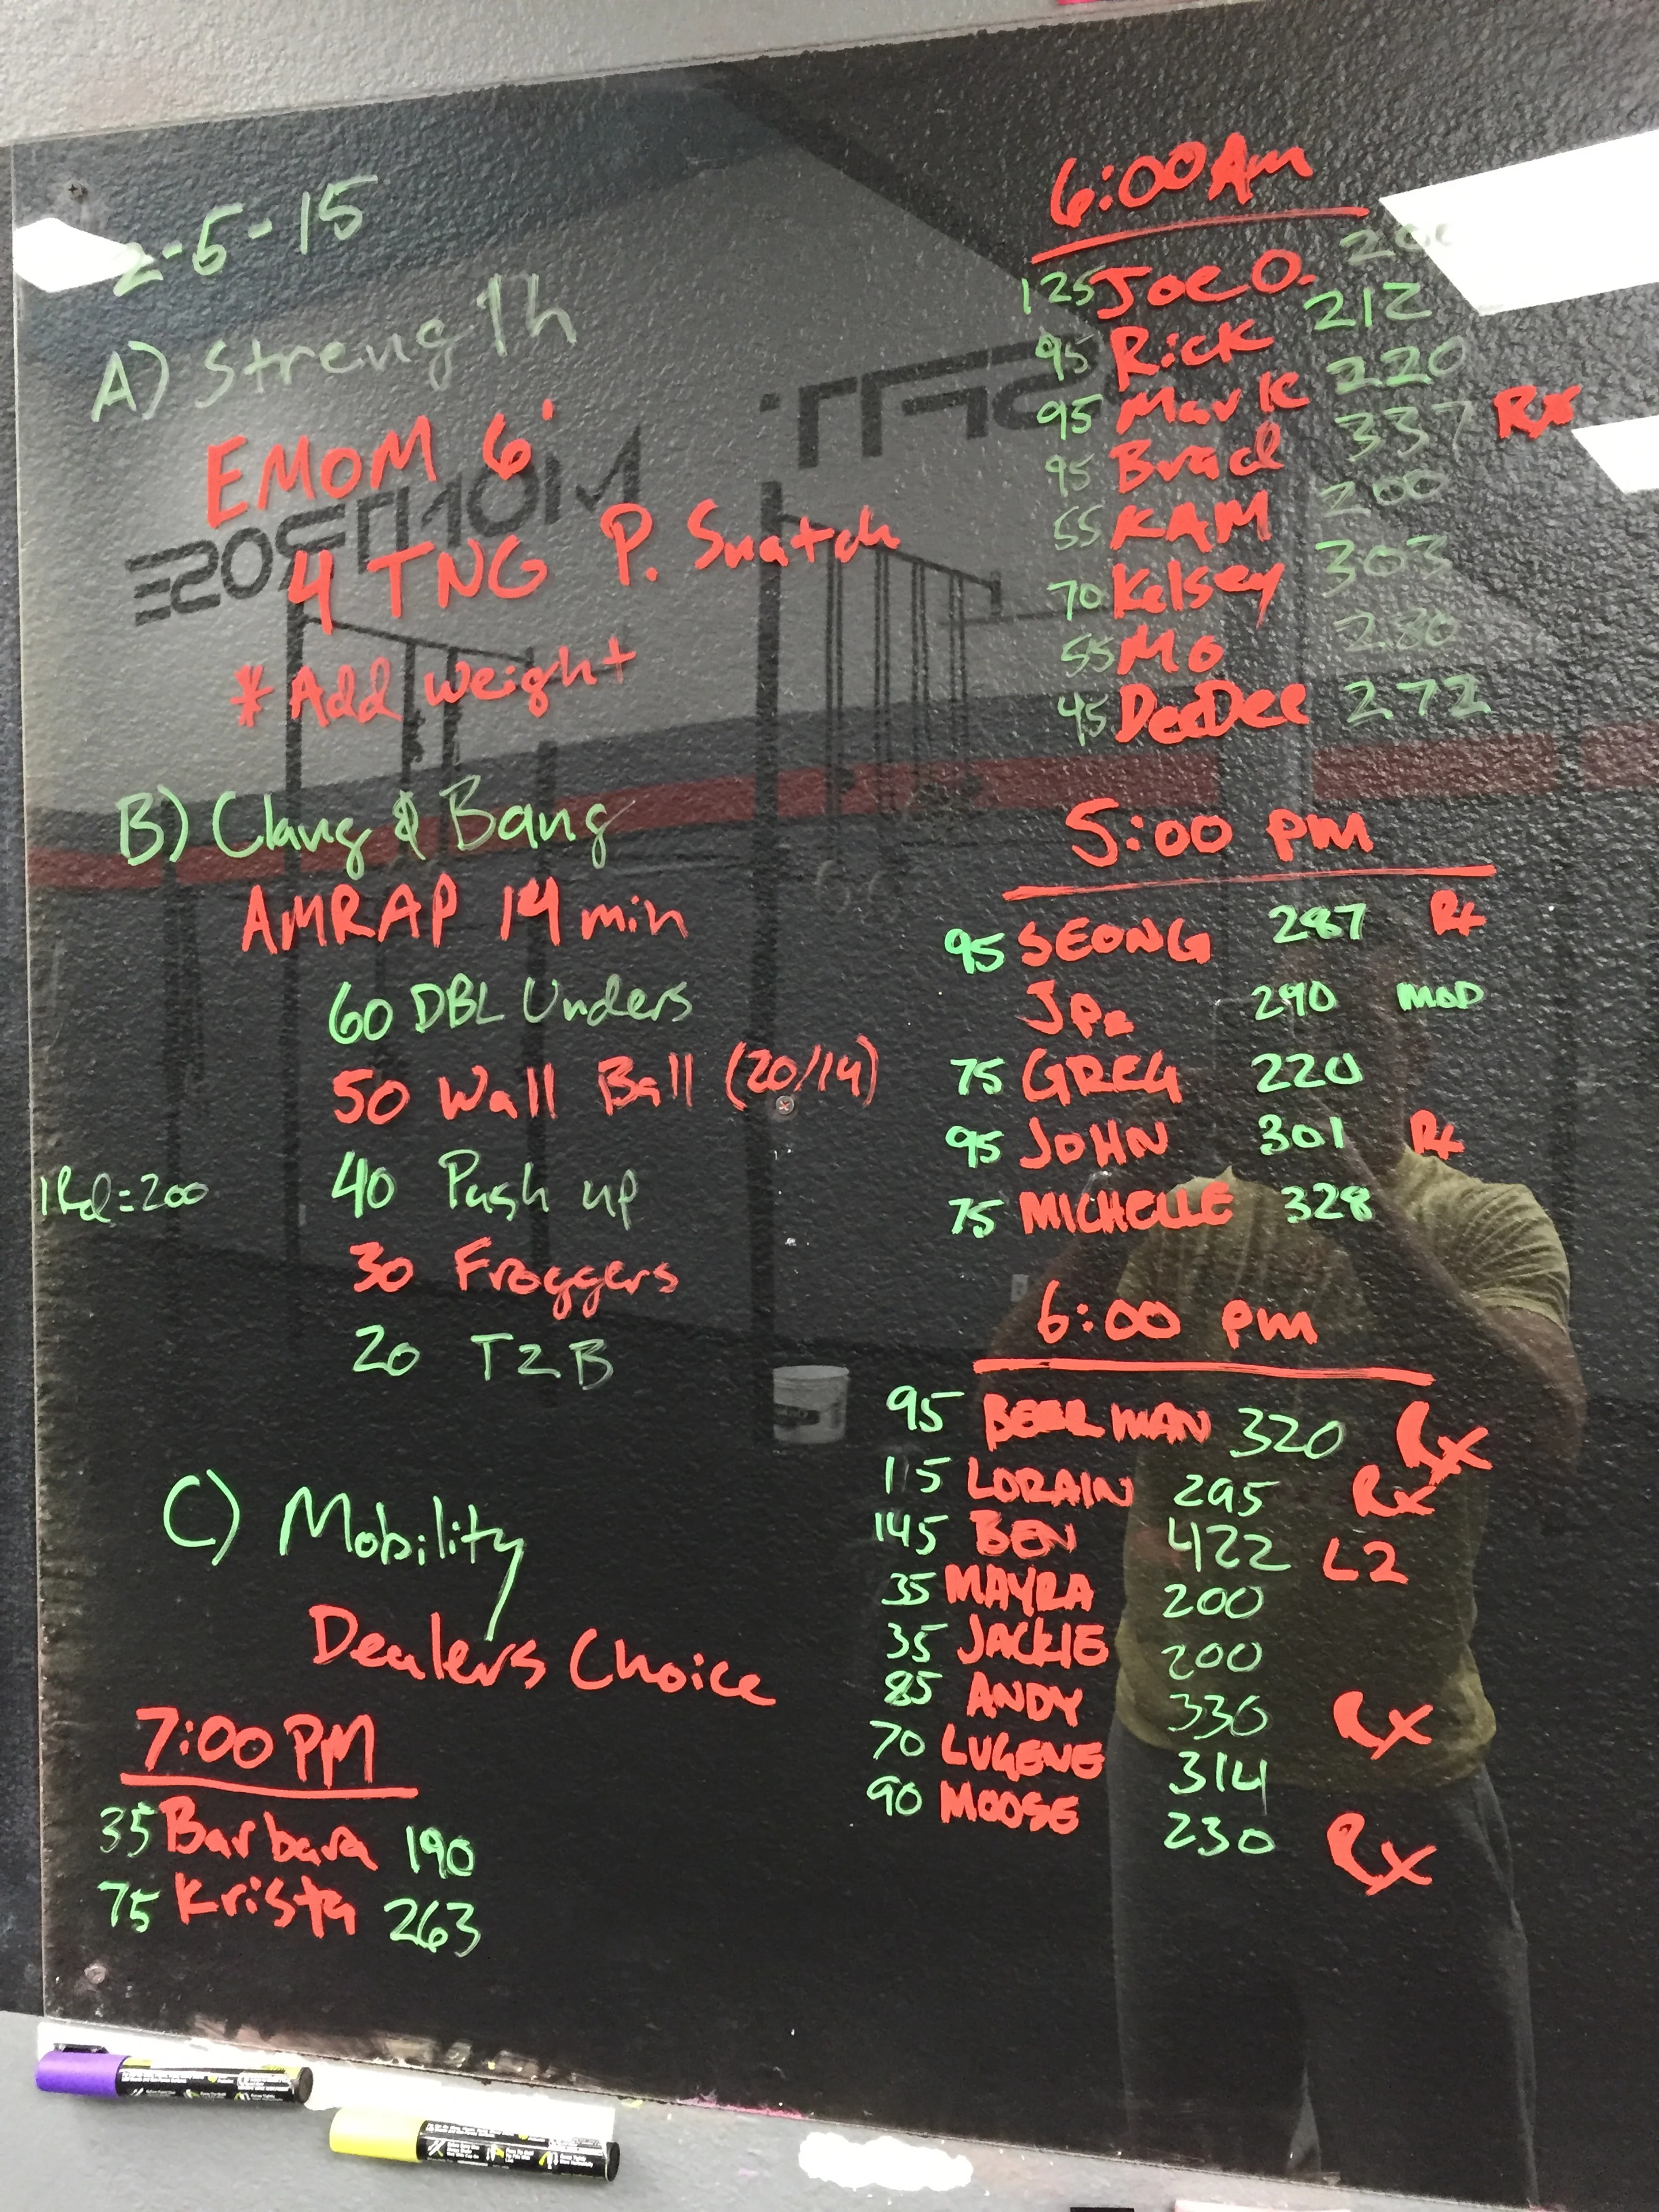 2-5-15
A) Strength
EMOM 6'
4 TNG P. Snatch
* Add weight
B) Clang & Bang
AMRAP 14 min
60 DBL Unders
50 Wall Ball (20/14)
40 Push up
1Rd=200
30 Froggers
20 T2B
C) Mobility
Dealers Choice
7:00 PM
35 Barbara 190
75 Krista 263
6:00 Am
125 Joe O.
95 Rick 212
95 Mark 220
95 Brad 337 Rx
55 KAM 200
70 Kelsey 303
55 Mo 280
45 DeeDee 272
5:00 pm
95 SEONG 287 Rx
290 MOD
75 GREG 220
95 JOHN 301 Rx
75 MICHELLE 328
6:00 pm
95 BEERMAN 320 Rx
115 LORAIN 295 Rx
145 BEN 422 L2
35 MAYRA 200
35 JACKIE 200
85 ANDY 336 Rx
70 LUGENE 314
90 MOOSE 230 Rx